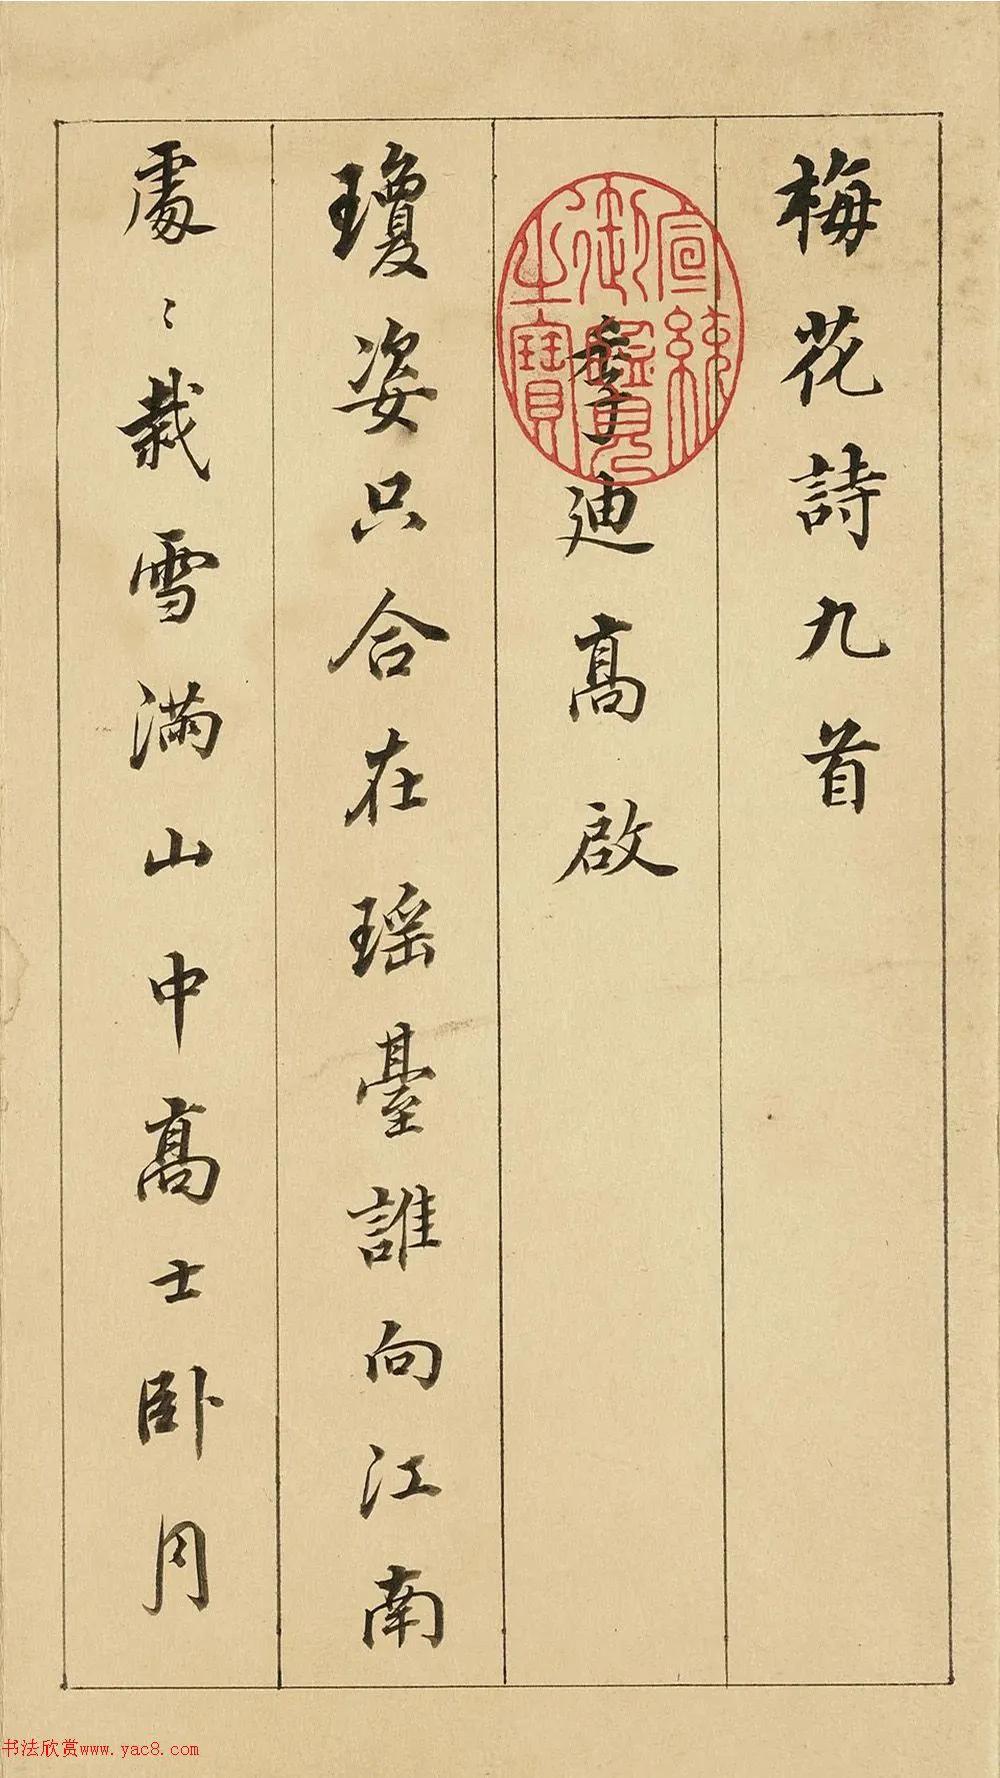 梅花詩九首
季迪高啟
瓊姿只合在瑤臺誰向江南
處〻栽雪滿山中高士卧月
宣統御鑒之寶
书法欣赏www.yac8.com